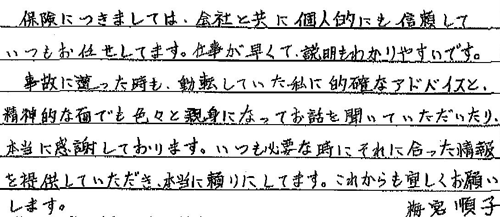 保険につきましては、会社と共に個人的にも信頼して
いつもお任せしてます。仕事が早くて、説明もわかりやすいです。
事故に遭った時も、動転していた私に的確なアドバイスと、
精神的な面でも色々と親身になってお話を聞いていただいたり、
本当に感謝しております。いつも必要な時にそれに合った情報
を提供していただき、本当に頼りにしてます。これからも宜しくお願い
します。 梅宮 順子